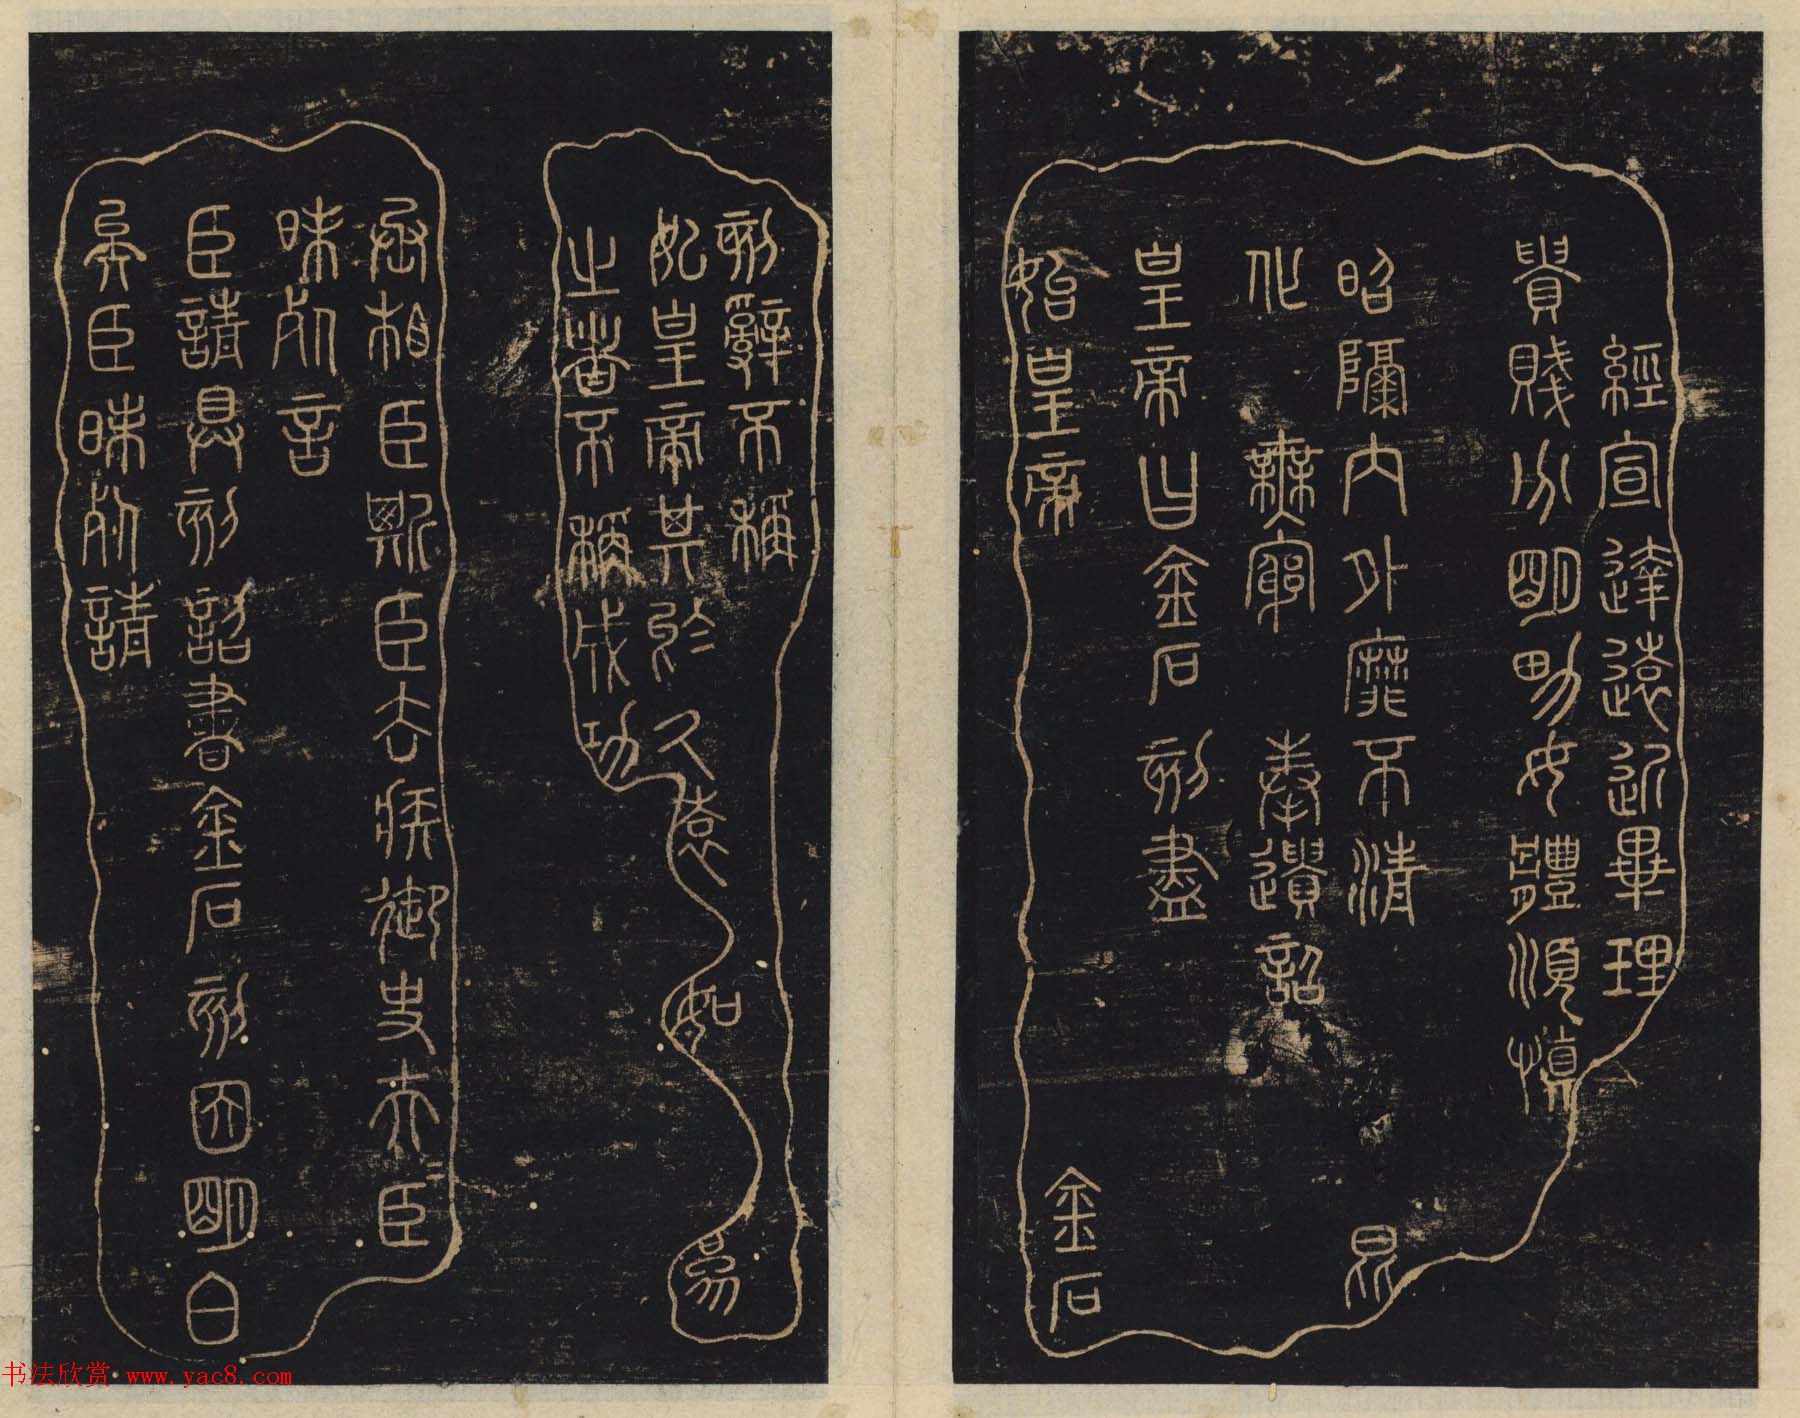 經宣達遠近畢理
貴賤分明男女體順慎
昭隔內外靡不清
化 無窮 奉遺詔
皇帝曰金石刻盡
始皇帝 金石
刻辭不稱
始皇帝其於久遠 如
之者不稱成功
丞相臣斯臣去疾御史夫臣
昧死言
臣請具刻詔書金石刻因明白
矣臣昧死請
书法欣赏 www.yac8.com